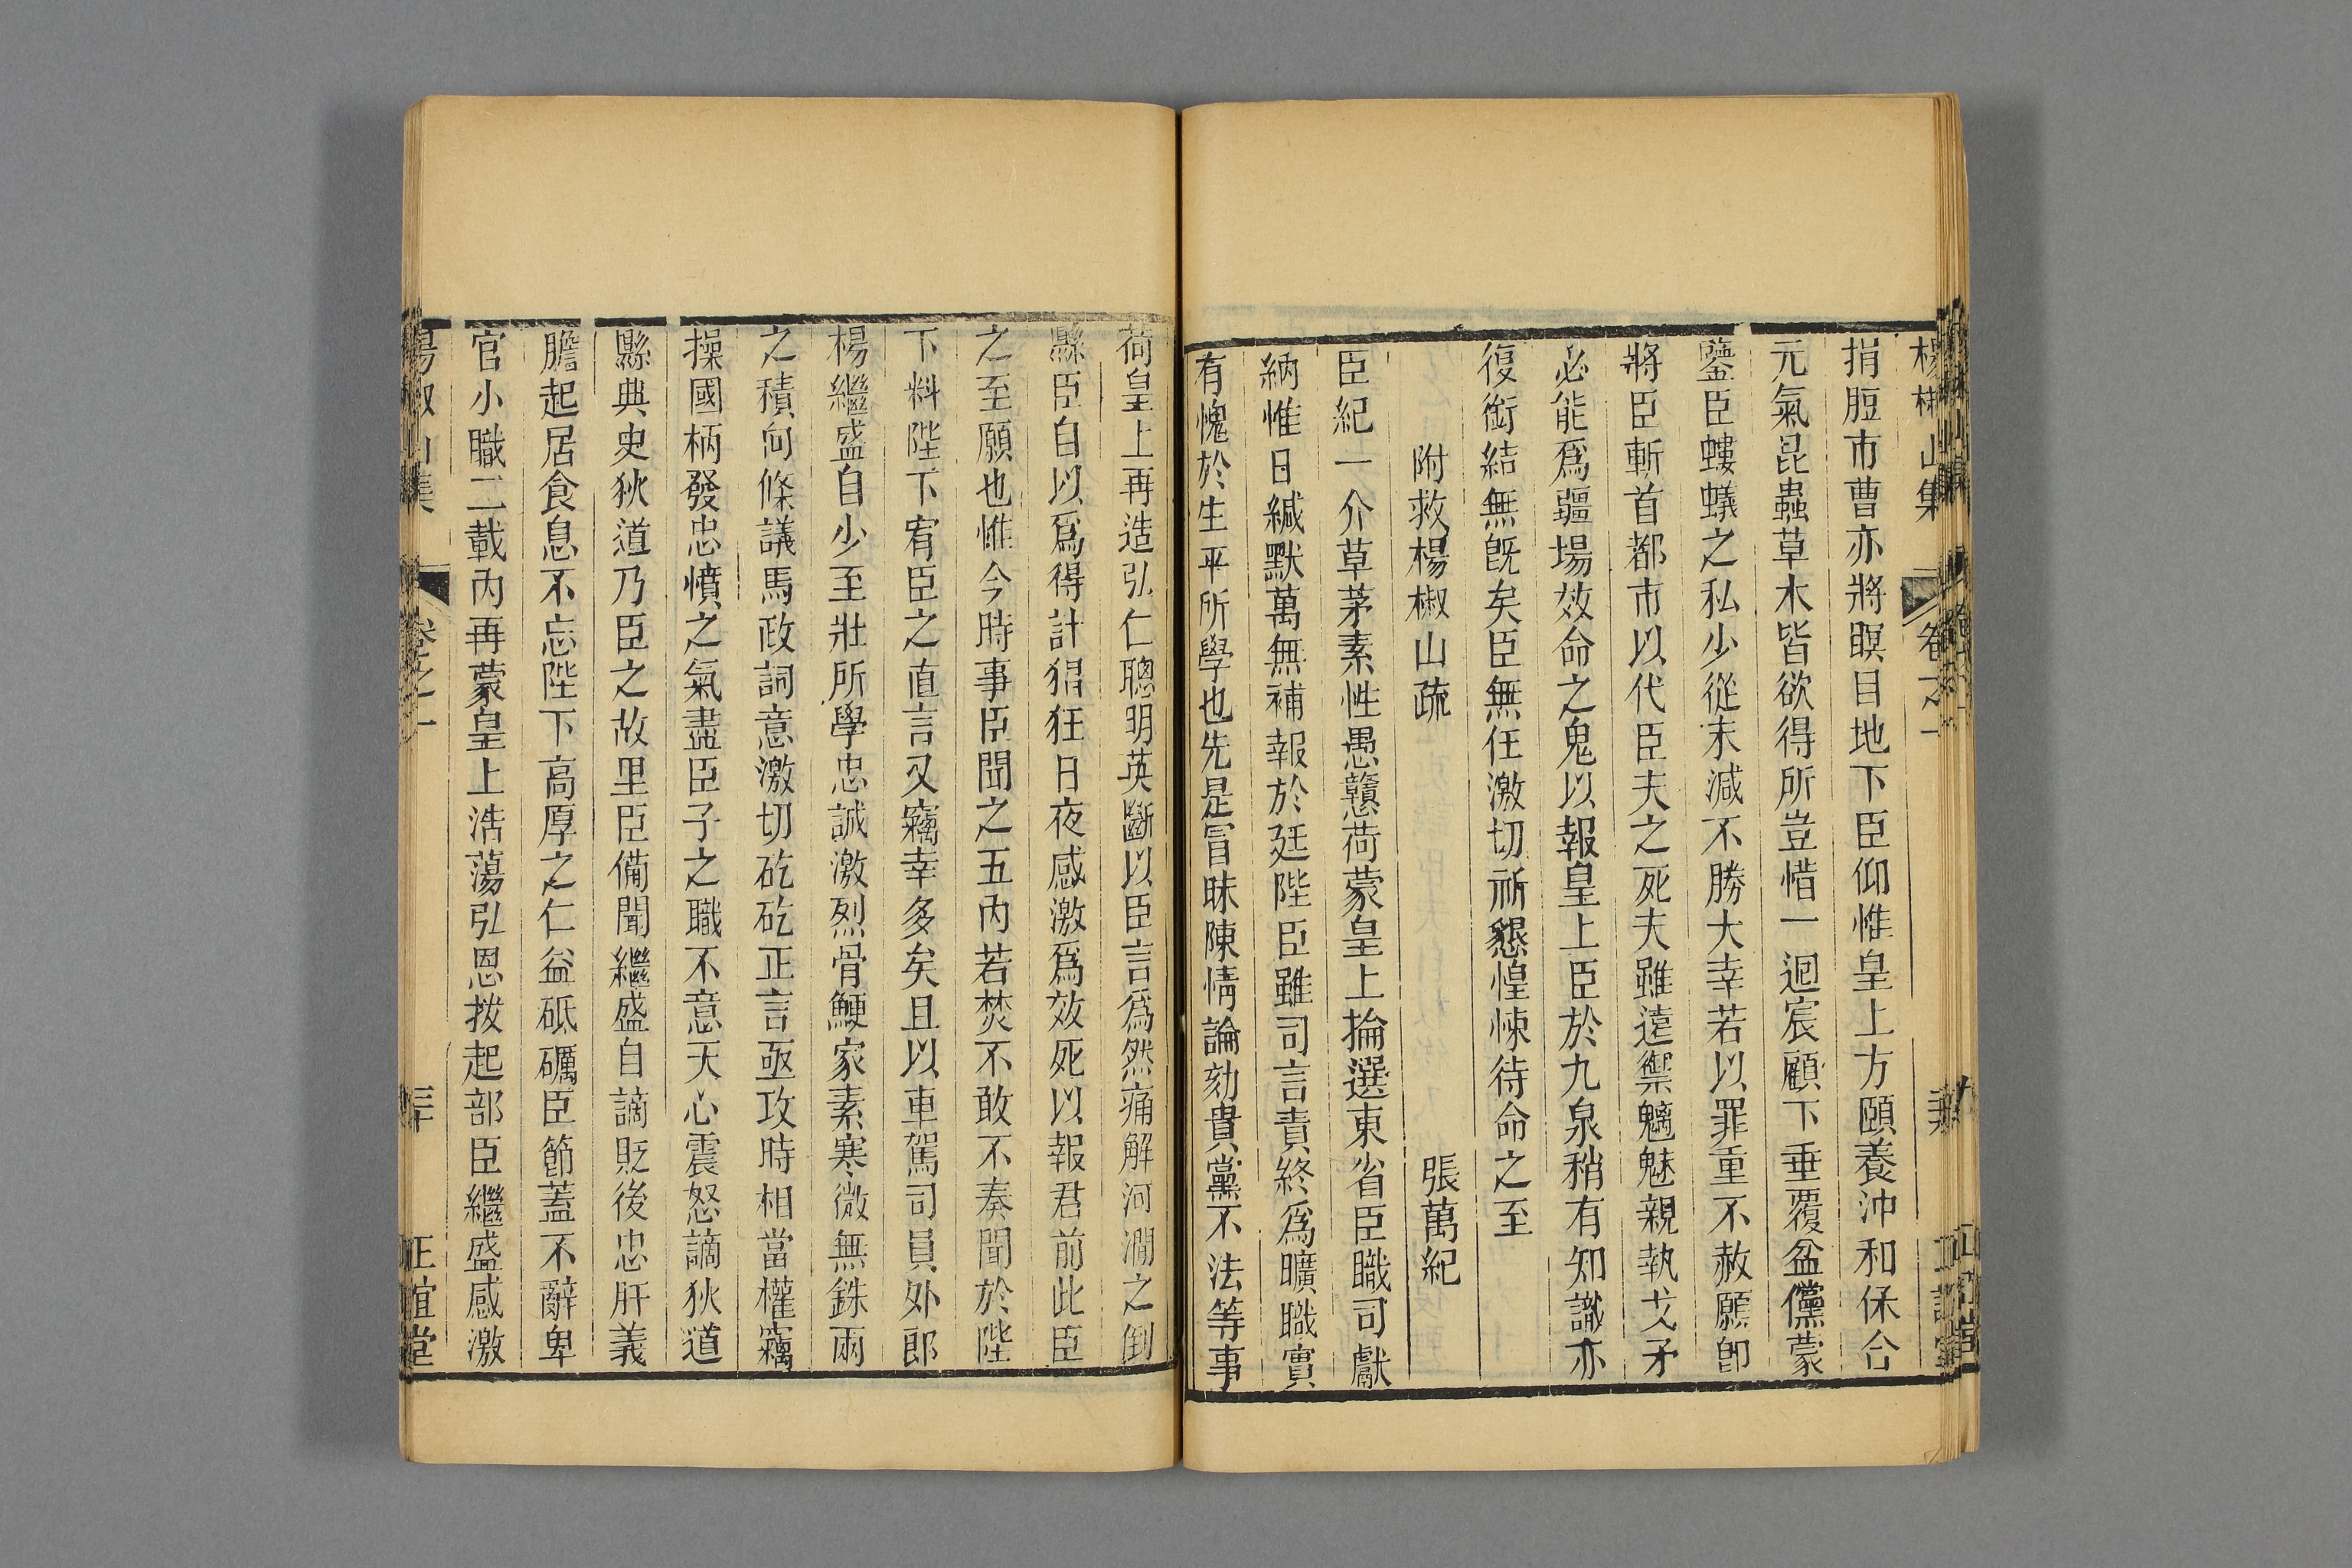 楊椒山集 卷之一 正誼堂
捐脰市曹亦將瞑目地下臣仰惟皇上方頤養沖和保合
元氣昆蟲草木皆欲得所豈惜一迴宸顧下垂覆盆儻蒙
鑒臣螻蟻之私少從末減不勝大幸若以罪重不赦願卽
將臣斬首都市以代臣夫之死夫雖遠禦魑魅親執戈矛
必能爲疆場效命之鬼以報皇上臣於九泉稍有知識亦
復銜結無旣矣臣無任激切祈懇惶悚待命之至
附救楊椒山疏 張萬紀
臣紀一介草茅素性愚戇荷蒙皇上掄選東省臣職司獻
納惟日緘默萬無補報於廷陛臣雖司言責終爲曠職實
有愧於生平所學也先是冒昧陳情論劾貴黨不法等事
荷皇上再造弘仁聰明英斷以臣言爲然痛解河澗之倒
縣臣自以爲得計猖狂日夜感激爲效死以報君前此臣
之至願也惟今時事臣聞之五內若焚不敢不奏聞於陛
下料陛下宥臣之直言又竊幸多矣且以車駕司員外郎
楊繼盛自少至壯所學忠誠激烈骨鯁家素寒微無銖兩
之積向條議馬政詞意激切矻矻正言亟攻時相當權竊
操國柄發忠憤之氣盡臣子之職不意天心震怒謫狄道
縣典史狄道乃臣之故里臣備聞繼盛自謫貶後忠肝義
膽起居食息不忘陛下高厚之仁益砥礪臣節蓋不辭卑
官小職二載內再蒙皇上浩蕩弘恩拔起部臣繼盛感激
楊椒山集 卷之一 三十 正誼堂